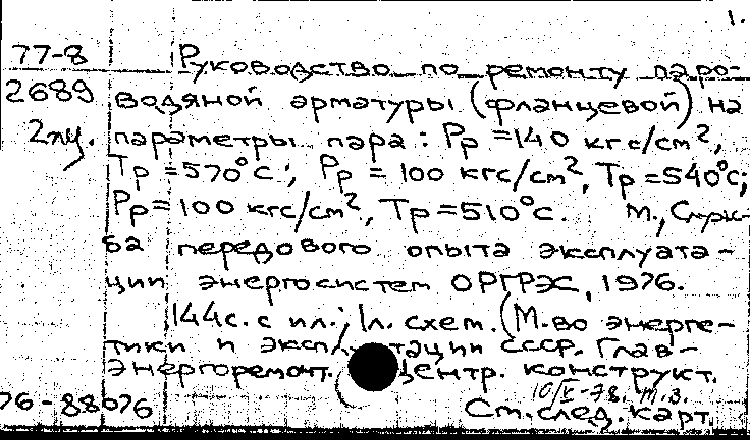 1.
77-8 Руководство по ремонту паро-
2689 водяной арматуры (фланцевой) на
2 пц. параметры пара: Pp =140 кгс/cm²,
Tp =570°C; Pp = 100 кгс/cm², Tp =540°C;
Pp = 100 кгс/cm², Tp =510°C. М., Служ-
ба передового опыта эксплуата-
ции энергосистем ОРГРЭС, 1976.
144с. с ил.; 1л. схем. (М-во энерге-
тики и эксплуатации СССР. Глав-
энергоремонт. Центр. конструкт.
76-88076 Ст. след. карт.